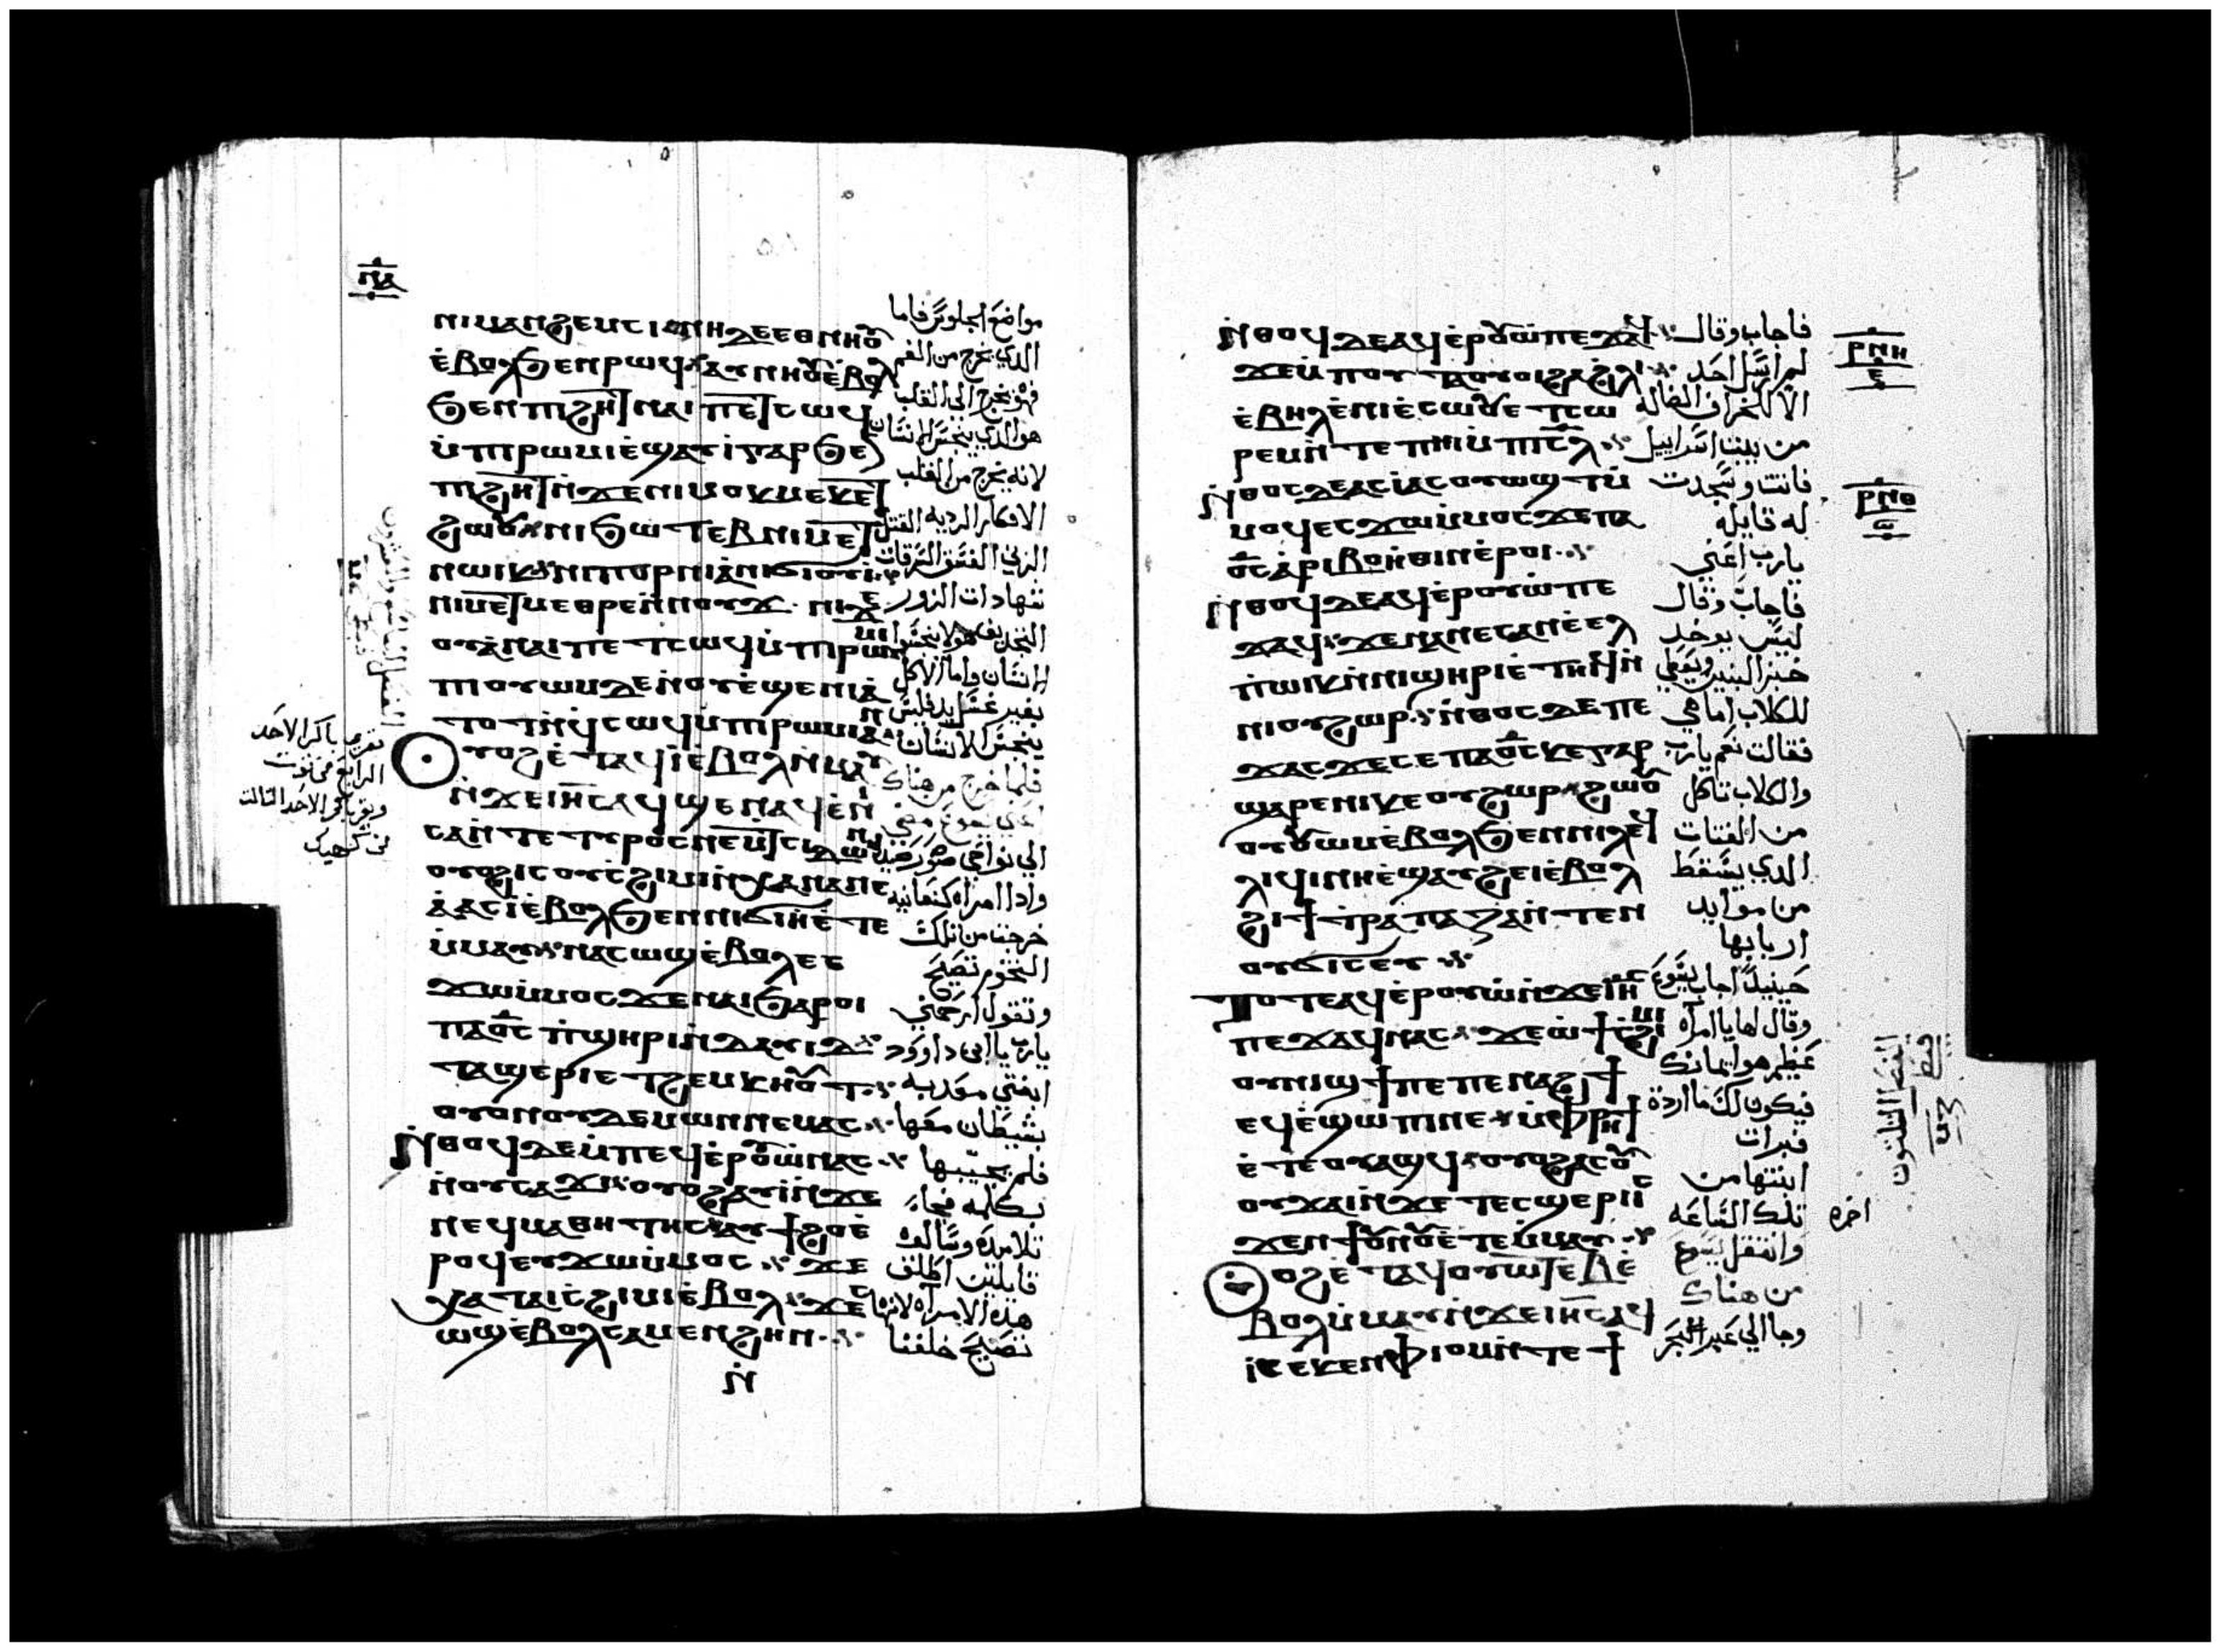 ⲛ̅ⲁ̅
ⲛⲓⲙⲁⲛϩⲉⲙⲥⲓ ⲛⲏⲇⲉⲉⲑⲛⲏⲟⲩ
ⲉ̇ⲃⲟⲗϧⲉⲛⲣⲱϥ ⲁⲩⲛⲏⲟⲩⲉ̇ⲃⲟⲗ
ϧⲉⲛⲡϩⲏⲧ ⲛⲁⲓⲡⲉⲧⲥⲱϥ
ⲙ̇ⲡⲓⲣⲱⲙⲓ ⲉ̇ϣⲁⲩⲓ̇ⲅⲁⲣϧⲉⲛ
ⲡϩⲏⲧ ⲛ̇ϫⲉⲛⲓⲙⲟⲕⲙⲉⲕⲉⲧ
ϩⲱⲟⲩ ⲛⲓϧⲱⲧⲉⲃ ⲛⲓⲙⲉⲧ
ⲛⲱⲓⲕ ⲛⲓⲡⲟⲣⲛⲓⲁ̇ ⲛⲓϭⲓⲟⲩⲓ̇
ⲛⲓⲙⲉⲧⲙⲉⲑⲣⲉⲛ̇ⲛⲟⲩϫ ⲛⲓϫⲉ
ⲟⲩⲁ̇ ⲛⲁⲓⲡⲉⲧⲥⲱϥⲙ̇ⲡⲓⲣⲱⲙⲓ
ⲡⲓⲟⲩⲱⲙⲇⲉⲛ̇ⲟⲩⲉ̇ϣⲉⲛⲓⲁ̇
ⲧⲟⲧⲛ̇ϥⲥⲱϥⲙ̇ⲡⲓⲣⲱⲙⲓⲁⲛ
ⲟⲩⲟϩⲉ̇ⲧⲁϥⲓ̇ⲉ̇ⲃⲟⲗⲙ̇ⲙⲁⲩ
ⲛ̇ϫⲉⲓⲏⲥ ⲁϥϣⲉⲛⲁϥⲉ̇ⲛⲓ
ⲥⲁⲛ̇ⲧⲉⲧⲩⲣⲟⲥⲛⲉⲙⲧⲥⲓⲇⲱⲛ
ⲟⲩⲟϩⲓⲥⲟⲩⲥ̇ϩⲓⲙⲓⲛ̇ⲭⲁⲛⲁⲛⲉ
ⲁ̇ ⲁⲥⲓ̇ⲉ̇ⲃⲟⲗϧⲉⲛⲛⲓϭⲓⲏ̇ⲉ̇ⲧⲉ
ⲙ̇ⲙⲁⲩ ⲛⲁⲥⲱϣⲉ̇ⲃⲟⲗⲉⲥ
ϫⲱⲙ̇ⲙⲟⲥϫⲉⲛⲁⲓϧⲁⲣⲟⲓ
ⲡⲁⲟ̅ⲥ̅ ⲡ̇ϣⲏⲣⲓⲛ̇ⲇⲁⲩⲓⲇ
ⲧⲁϣⲉⲣⲓ ⲉⲧϩⲉⲙⲕⲏⲟⲩⲧ
ⲟⲩⲟⲛⲟⲩⲇⲉⲙⲱⲛⲛⲉⲙⲁⲥ
ⲛ̇ⲑⲟϥⲇⲉⲙ̇ⲡⲉϥⲉ̇ⲣⲟⲩⲱ̇ⲛⲁⲥ
ⲛ̇ⲟⲩⲥⲁϫⲓ ⲟⲩⲟϩⲁⲩⲓ̇ⲛ̇ϫⲉ
ⲛⲉϥⲙⲁⲑⲏⲧⲏⲥ ⲁⲩϯϩⲟⲉ̇
ⲣⲟϥⲉⲩϫⲱⲙ̇ⲙⲟⲥ ϫⲉ
ⲭⲁⲧⲁⲓⲥ̇ϩⲓⲙⲓⲉ̇ⲃⲟⲗ ϫⲉⲥ
ⲱϣⲉ̇ⲃⲟⲗⲥⲁⲙⲉⲛϩⲏⲛ
ⲛ̇
مواضع الجلوس فاما
الدي يخرج من الفم
فهو يخرج الي القلب
هو الدي ينجس الانسان
لانه يخرج من القلب
الافكار الرديه القتل
الزني الفسق السرقات
شهادات الزور
التجديف هولا ينجسوا
الانسان واما الاكل
بغير غسل يد فليس
ينجس الانسان
فلما خرج من هناك
الي نواحي صور وصيدا
وادا امراه كنعانيه
خرجت من تلك
التخوم تصيح
وتقول ارحمني
يارب يا ابن داوود
ابنتي معدبه
بشيطان معها
فلم يجيبها
بكلمه فجاء
تلاميده وسالوه
قايلين اطلق
هده الامراه لانها
تصيح خلفنا
تقري باكر الاحد
الرابع من توت
وتقري باكر الاحد التالت
من كيهك
ⲣ̅ⲛ̅ⲏ̅
ⲉ̅
ⲣ̅ⲛ̅ⲑ̅
ⲛ̇ⲑⲟϥⲇⲉⲁϥⲉ̇ⲣⲟⲩⲱ̇ⲡⲉϫⲁϥ
ϫⲉⲙ̇ⲡⲟⲩⲧⲁⲟⲩⲟⲓϩⲁϩⲗⲓ
ⲉ̇ⲃⲏⲗⲉ̇ⲛⲓⲉ̇ⲥⲱⲟⲩ ⲉⲧⲥⲱ
ⲣⲉⲙⲛ̇ⲧⲉⲡⲏⲓⲙ̇ⲡⲓⲥ̅ⲗ̅
ⲛ̇ⲑⲟⲥⲇⲉⲁⲥⲓ̇ⲁⲥⲟⲩⲱϣⲧⲙ̇
ⲙⲟϥⲉⲥϫⲱⲙ̇ⲙⲟⲥϫⲉⲡⲁ
ⲟ̅ⲥ̅ ⲁ̇ⲣⲓⲃⲟⲏ̇ⲑⲓⲛⲉ̇ⲣⲟⲓ
ⲛ̇ⲑⲟϥⲇⲉⲁϥⲉ̇ⲣⲟⲩⲱ̇ⲡⲉ
ϫⲁϥ ϫⲉⲛⲁⲛⲉⲥⲁⲛⲉ̇ⲉⲗ
ⲡ̇ⲱⲓⲕⲛ̇ⲛⲓϣⲏⲣⲓⲉ̇ⲧⲏⲓϥⲛ̇
ⲛⲓⲟⲩϩⲱⲣ ⲛ̇ⲑⲟⲥⲇⲉⲡⲉ
ϫⲁⲥϫⲉⲥⲉⲡⲁⲟ̅ⲥ̅ⲕⲉⲅⲁⲣ
ϣⲁⲣⲉⲛⲓⲕⲉⲟⲩϩⲱⲣ ϩⲱⲟⲩ
ⲟⲩⲱⲙⲉ̇ⲃⲟⲗϧⲉⲛⲛⲓⲗⲉϥ
ⲗⲓϥⲓⲛⲏⲉ̇ϣⲁⲩϩⲉⲓⲉ̇ⲃⲟⲗ
ϩⲓϯⲧ̇ⲣⲁⲡⲁⲍⲁⲛ̇ⲧⲉⲛ
ⲟⲩϭⲓⲥⲉⲩ
ⲧⲟⲧⲉⲁϥⲉ̇ⲣⲟⲩⲱ̇ⲛ̇ϫⲉⲓⲏⲥ
ⲡⲉϫⲁϥⲛⲁⲥ ϫⲉⲱ̇ϯⲥ̇ϩⲓⲙⲓ
ⲟⲩⲛⲓϣϯⲡⲉⲡⲉⲛⲁϩϯ
ⲉϥⲉ̇ϣⲱⲡⲓⲛⲉ ⲙ̇ⲫⲣⲏϯ
ⲉ̇ⲧⲉⲟⲩⲁϣϥ ⲟⲩⲟϩⲁⲥⲟⲩ
ⲟⲩϫⲁⲓⲛ̇ϫⲉⲧⲉⲥϣⲉⲣⲓⲓⲥ
ϫⲉⲛϯⲟⲩⲛⲟⲩⲉ̇ⲧⲉⲙ̇ⲙⲁⲩ
ⲟⲩⲟϩⲉ̇ⲧⲁϥⲟⲩⲱⲧⲉⲃⲉ̇
ⲃⲟⲗⲙ̇ⲙⲁⲩⲛ̇ϫⲉⲓⲏⲥⲁϥ
ⲓ̇ⲉⲥⲕⲉⲛⲫⲓⲟⲙⲛ̇ⲧⲉϯ
فاجاب وقال
لم ارسل احد
الا للخراف الضاله
من بيت اسراييل
فاتت وسجدت
له قايله
يارب اعني
فاجاب وقال
ليس يوخد
خبز البنين ويعطي
للكلاب اما هي
فقالت نعم يارب
والكلاب تاكل
من الفتات
الدي يسقط
من موايد
اربابها
حينيدٍ اجاب يسوع
وقال لها يا امراه
عظيم هو ايمانك
فيكون لك ما اردة
فبرات
ابنتها من
تلك الساعه
وانتقل يسوع
من هناك
وجا الي عبر البحر
اخره
الفصل التلتون
قبطي